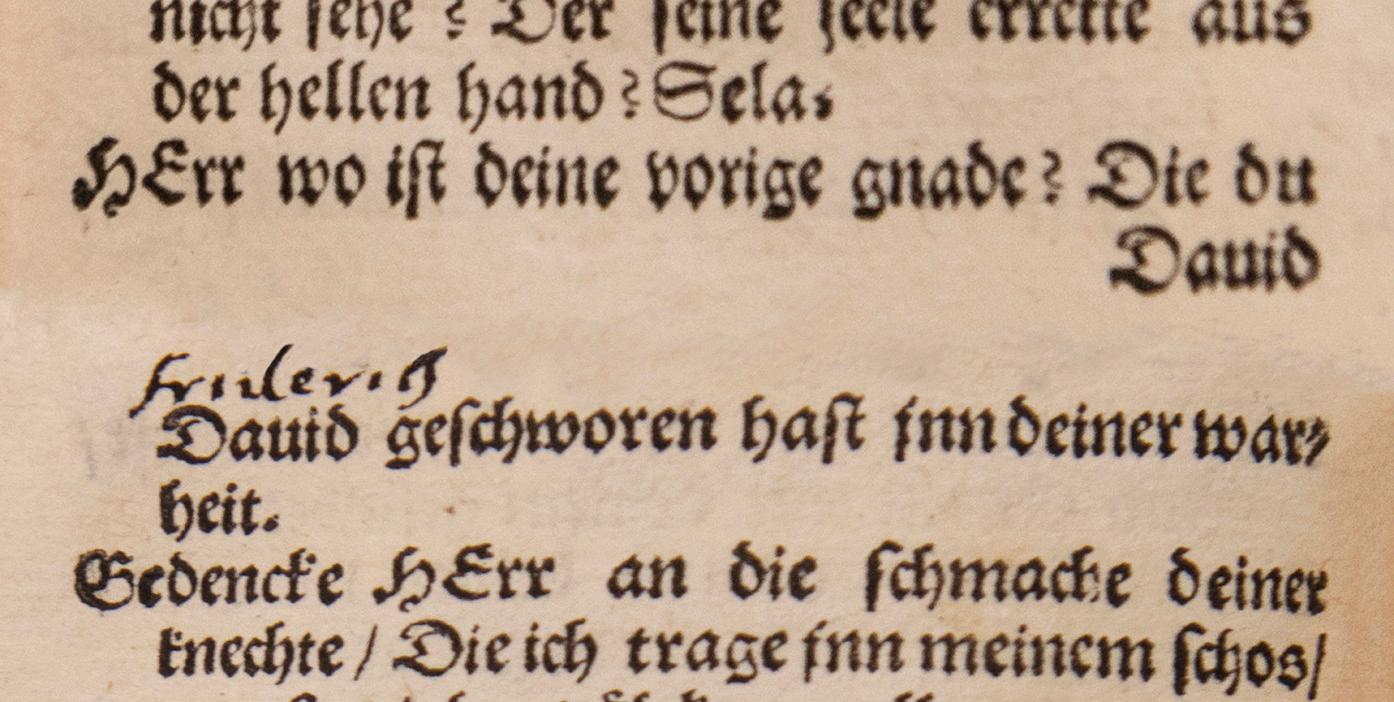 nicht sehe? Der seine seele errette aus
der hellen hand? Sela.
HErr wo ist deine vorige gnade? Die du
Dauid
friderich
Dauid geschworen hast jnn deiner war⸗
heit.
Gedencke HErr an die schmache deiner
knechte / Die ich trage jnn meinem schos /